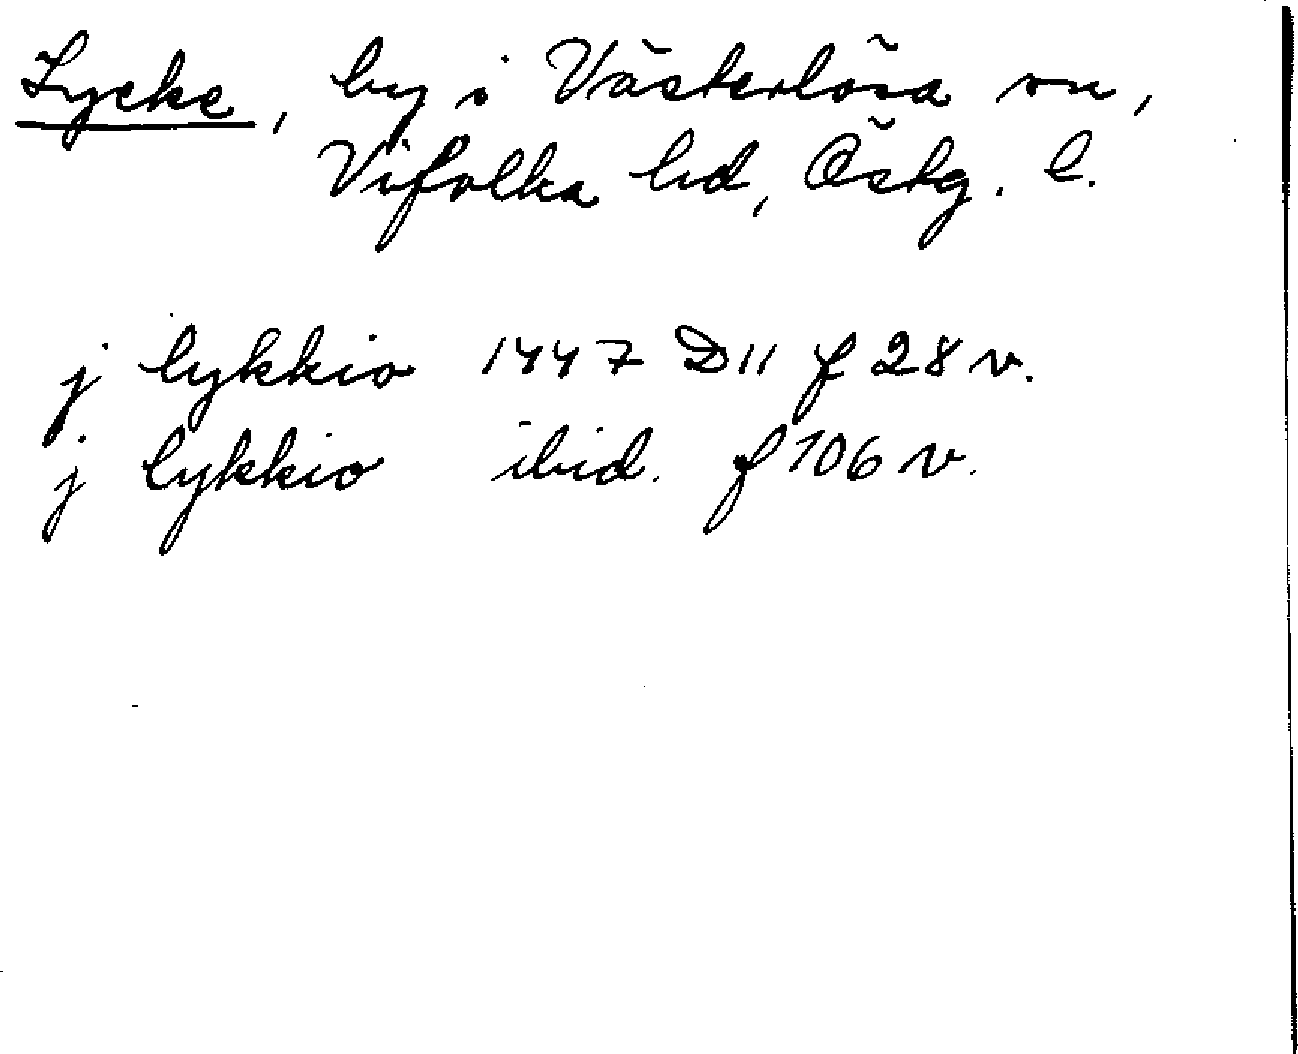 Lycke, by i Västerlösa sn,
Vifolka hd, Östg. l.
j lykkio 1447 D11 f 28 v.
j lykkio ibid. f 106 v.